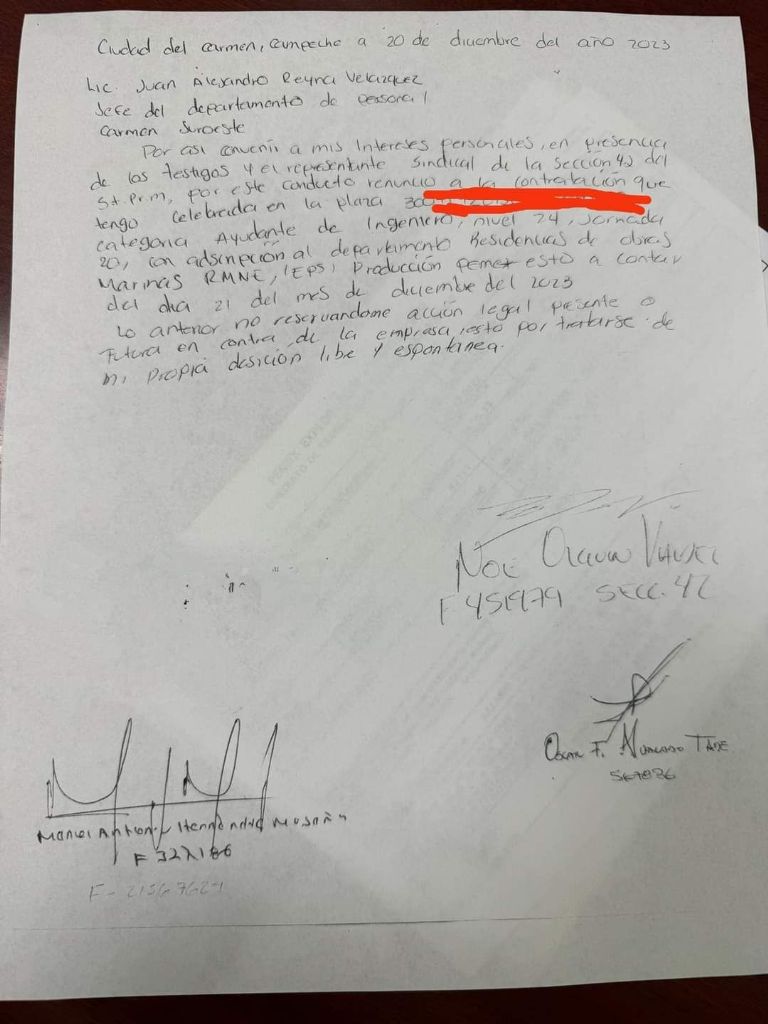 Ciudad del carmen, campeche a 20 de diciembre del año 2023
Lic. Juan Alejandro Reyna Velazquez
Jefe del departamento de personal
Carmen Suroeste
Por asi convenir a mis intereses personales, en presencia
de los testigos y el representante sindical de la sección 42 del
St.p.r.m, por este conducto renuncio a la contratación que
tengo celebrada en la plaza
categoria Ayudante de Ingeniero, nivel 24, Jornada
20, con adscripción al departamento Residencias de obras
Marinas RMNE, (EPS) Producción pemex esto a contar
del dia 21 del mes de diciembre del 2023
Lo anterior no reservandome acción legal presente o
Futura en contra de la empresa, esto por tratarse de
mi propia desición libe y espontanea.
Noe
F 451979 SECC. 42
Oscar F.
Manuel Antonio Hernandez
F 322186